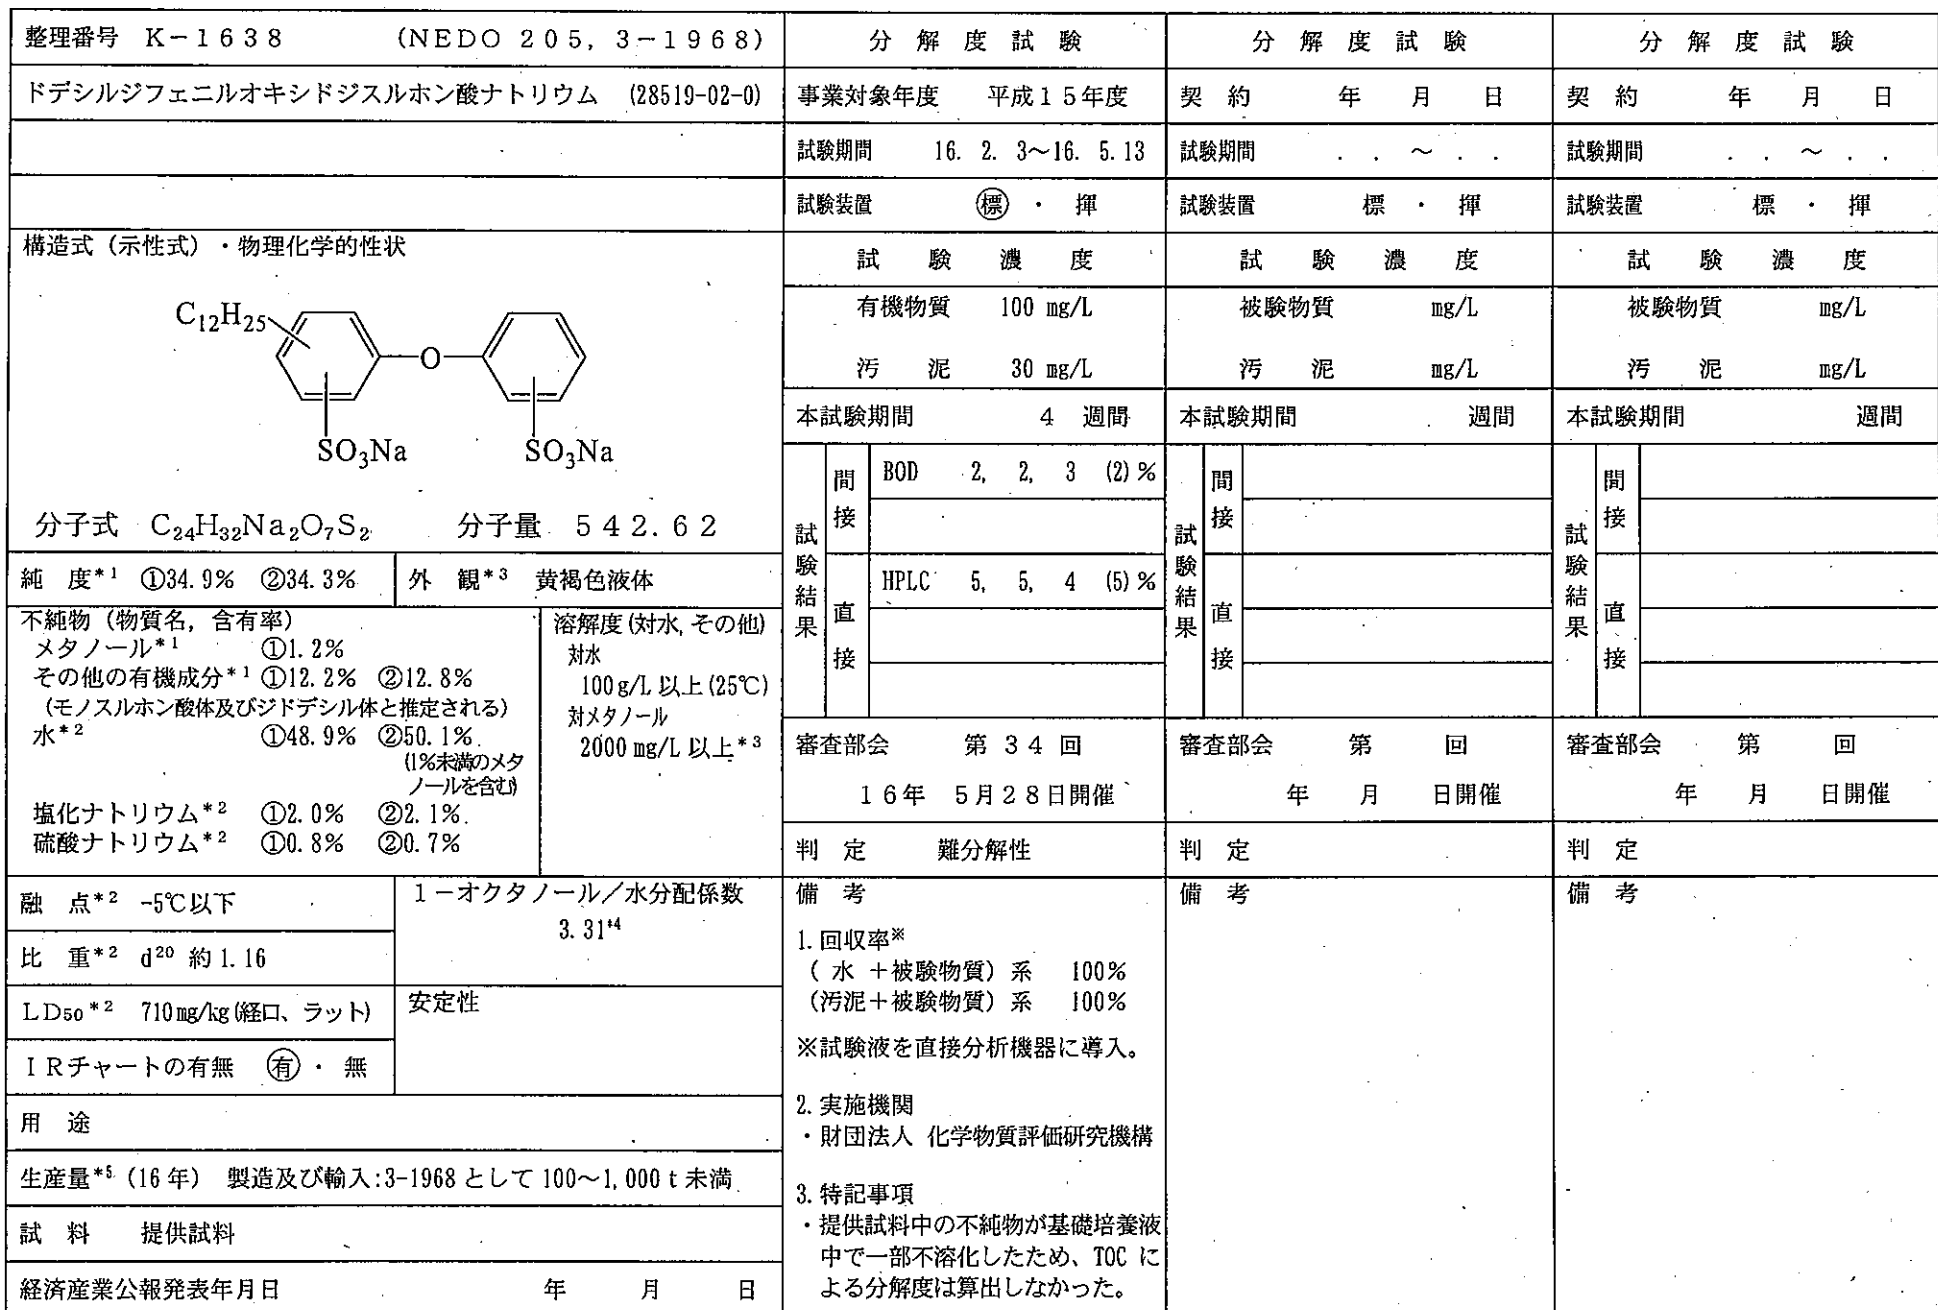 整理番号 K-1638 (NEDO 205, 3-1968)
ドデシルジフェニルオキシドジスルホン酸ナトリウム (28519-02-0)
構造式（示性式）・物理化学的性状
C12H25
O
SO3Na SO3Na
分子式 C24H32Na2O7S2 分子量 542.62
純 度*1 ①34.9% ②34.3% 外 観*3 黄褐色液体
不純物（物質名，含有率）
メタノール*1 ①1.2%
その他の有機成分*1 ①12.2% ②12.8%
（モノスルホン酸体及びジドデシル体と推定される）
水*2 ①48.9% ②50.1%
(1%未満のメタ
ノールを含む)
塩化ナトリウム*2 ①2.0% ②2.1%
硫酸ナトリウム*2 ①0.8% ②0.7%
溶解度(対水,その他)
対水
100g/L 以上(25℃)
対メタノール
2000 mg/L 以上*3
融 点*2 -5℃以下
比 重*2 d20 約1.16
LD50*2 710mg/kg(経口、ラット)
IRチャートの有無 有・無
1-オクタノール／水分配係数
3.31*4
安定性
用 途
生産量*5 (16年) 製造及び輸入:3-1968として100～1,000t未満
試 料 提供試料
経済産業公報発表年月日 年 月 日
分 解 度 試 験
事業対象年度 平成15年度
試験期間 16. 2. 3～16. 5.13
試験装置 標 ・ 揮
試 験 濃 度
有機物質 100 mg/L
汚 泥 30 mg/L
本試験期間 4 週間
試験結果
間接
BOD 2, 2, 3 (2)%
直接
HPLC 5, 5, 4 (5)%
審査部会 第 34 回
16年 5月28日開催
判 定 難分解性
備 考
1.回収率※
( 水 +被験物質) 系 100%
(汚泥+被験物質) 系 100%
※試験液を直接分析機器に導入。
2.実施機関
・財団法人 化学物質評価研究機構
3.特記事項
・提供試料中の不純物が基礎培養液
中で一部不溶化したため、TOC に
よる分解度は算出しなかった。
分 解 度 試 験
契 約 年 月 日
試験期間 . . ～ . .
試験装置 標 ・ 揮
試 験 濃 度
被験物質 mg/L
汚 泥 mg/L
本試験期間 週間
試験結果
間接
直接
審査部会 第 回
年 月 日開催
判 定
備 考
分 解 度 試 験
契 約 年 月 日
試験期間 . . ～ . .
試験装置 標 ・ 揮
試 験 濃 度
被験物質 mg/L
汚 泥 mg/L
本試験期間 週間
試験結果
間接
直接
審査部会 第 回
年 月 日開催
判 定
備 考